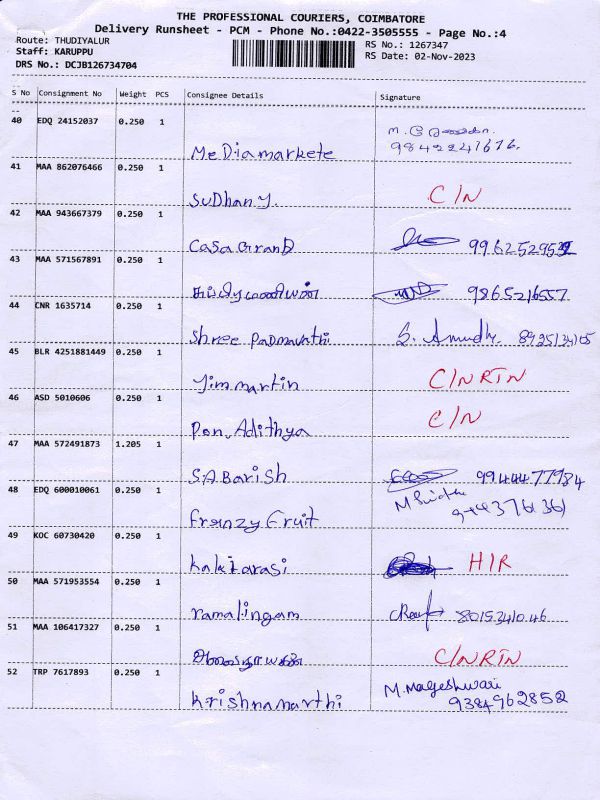 THE PROFESSIONAL COURIERS, COIMBATORE
Delivery Runsheet - PCM - Phone No.:0422-3505555 - Page No.:4
Route: THUDIYALUR
RS No.: 1267347
Staff: KARUPPU
RS Date: 02-Nov-2023
DRS No.: DCJB126734704
S No Consignment No Weight PCS Consignee Details Signature
40 EDQ 24152037 0.250 1
9842241616.
MeDiamarkete
41 MAA 862076466 0.250 1
Sudhan y. C/N
42 MAA 943667379 0.250 1
CasaGranD 996252953
43 MAA 571567891 0.250 1
சுப்பிரமணியன் 9865216557
44 CNR 1635714 0.250 1
Shree Padmavathi S. Amudh. 8925134105
45 BLR 4251881449 0.250 1
Jimmartin C/NRTN
46 ASD 5010606 0.250 1
Pon. Adithya C/N
47 MAA 572491873 1.205 1
S.A Barish 9944477984
48 EDQ 600010061 0.250 1
Frenzy Fruit
49 KOC 60730420 0.250 1
Kalaiarasi H/R
50 MAA 571953554 0.250 1
ramalingam 8015341046
51 MAA 106417327 0.250 1
C/NRTN
52 TRP 7617893 0.250 1
M. Mageshwari
Krishnamarthi 9384962852